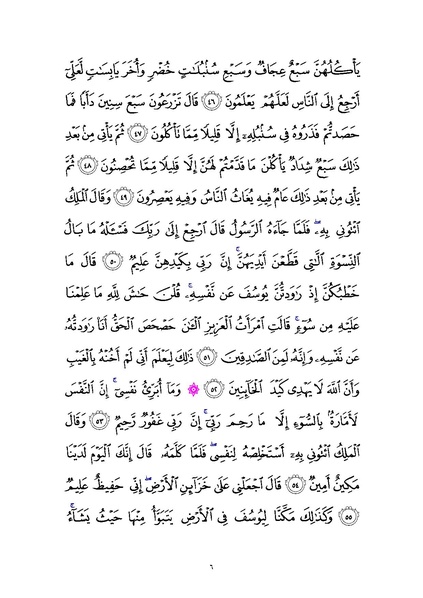 يَأۡكُلُهُنَّ سَبۡعٌ عِجَافٞ وَسَبۡعِ سُنۢبُلَٰتٍ خُضۡرٖ وَأُخَرَ يَابِسَٰتٖ لَّعَلِّيٓ
أَرۡجِعُ إِلَى ٱلنَّاسِ لَعَلَّهُمۡ يَعۡلَمُونَ ٤٦ قَالَ تَزۡرَعُونَ سَبۡعَ سِنِينَ دَأَبٗا فَمَا
حَصَدتُّمۡ فَذَرُوهُ فِي سُنۢبُلِهِۦٓ إِلَّا قَلِيلٗا مِّمَّا تَأۡكُلُونَ ٤٧ ثُمَّ يَأۡتِي مِنۢ بَعۡدِ
ذَٰلِكَ سَبۡعٞ شِدَادٞ يَأۡكُلۡنَ مَا قَدَّمۡتُمۡ لَهُنَّ إِلَّا قَلِيلٗا مِّمَّا تُحۡصِنُونَ ٤٨ ثُمَّ
يَأۡتِي مِنۢ بَعۡدِ ذَٰلِكَ عَامٞ فِيهِ يُغَاثُ ٱلنَّاسُ وَفِيهِ يَعۡصِرُونَ ٤٩ وَقَالَ ٱلۡمَلِكُ
ٱئۡتُونِي بِهِۦۖ فَلَمَّا جَآءَهُ ٱلرَّسُولُ قَالَ ٱرۡجِعۡ إِلَىٰ رَبِّكَ فَسۡـَٔلۡهُ مَا بَالُ
ٱلنِّسۡوَةِ ٱلَّٰتِي قَطَّعۡنَ أَيۡدِيَهُنَّۚ إِنَّ رَبِّي بِكَيۡدِهِنَّ عَلِيمٞ ٥٠ قَالَ مَا
خَطۡبُكُنَّ إِذۡ رَٰوَدتُّنَّ يُوسُفَ عَن نَّفۡسِهِۦۚ قُلۡنَ حَٰشَ لِلَّهِ مَا عَلِمۡنَا
عَلَيۡهِ مِن سُوٓءٖۚ قَالَتِ ٱمۡرَأَتُ ٱلۡعَزِيزِ ٱلۡـَٰٔنَ حَصۡحَصَ ٱلۡحَقُّ أَنَا۠ رَٰوَدتُّهُۥ
عَن نَّفۡسِهِۦ وَإِنَّهُۥ لَمِنَ ٱلصَّٰدِقِينَ ٥١ ذَٰلِكَ لِيَعۡلَمَ أَنِّي لَمۡ أَخُنۡهُ بِٱلۡغَيۡبِ
وَأَنَّ ٱللَّهَ لَا يَهۡدِي كَيۡدَ ٱلۡخَآئِنِينَ ٥٢ ۞ وَمَآ أُبَرِّئُ نَفۡسِيٓۚ إِنَّ ٱلنَّفۡسَ
لَأَمَّارَةُۢ بِٱلسُّوٓءِ إِلَّا مَا رَحِمَ رَبِّيٓۚ إِنَّ رَبِّي غَفُورٞ رَّحِيمٞ ٥٣ وَقَالَ
ٱلۡمَلِكُ ٱئۡتُونِي بِهِۦٓ أَسۡتَخۡلِصۡهُ لِنَفۡسِيۖ فَلَمَّا كَلَّمَهُۥ قَالَ إِنَّكَ ٱلۡيَوۡمَ لَدَيۡنَا
مَكِينٌ أَمِينٞ ٥٤ قَالَ ٱجۡعَلۡنِي عَلَىٰ خَزَآئِنِ ٱلۡأَرۡضِۖ إِنِّي حَفِيظٌ عَلِيمٞ
٥٥ وَكَذَٰلِكَ مَكَّنَّا لِيُوسُفَ فِي ٱلۡأَرۡضِ يَتَبَوَّأُ مِنۡهَا حَيۡثُ يَشَآءُۚ
٦